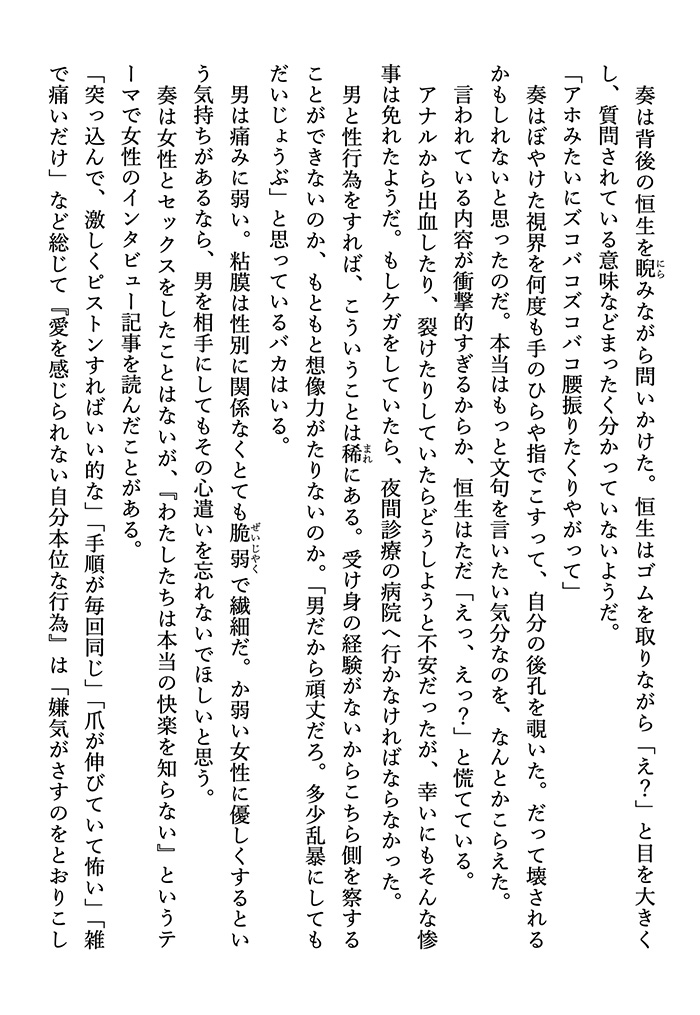 奏は背後の恒生を睨みながら問いかけた。恒生はゴムを取りながら「え？」と目を大きく
し、質問されている意味などまったく分かっていないようだ。
「アホみたいにズコバコズコバコ腰振りたくりやがって」
奏はぼやけた視界を何度も手のひらや指でこすって、自分の後孔を覗いた。だって壊される
かもしれないと思ったのだ。本当はもっと文句を言いたい気分なのを、なんとかこらえた。
言われている内容が衝撃的すぎるからか、恒生はただ「えっ、えっ？」と慌てている。
アナルから出血したり、裂けたりしていたらどうしようと不安だったが、幸いにもそんな惨
事は免れたようだ。もしケガをしていたら、夜間診療の病院へ行かなければならなかった。
男と性行為をすれば、こういうことは稀にある。受け身の経験がないからこちら側を察する
ことができないのか、もともと想像力がたりないのか。「男だから頑丈だろ。多少乱暴にしても
だいじょうぶ」と思っているバカはいる。
男は痛みに弱い。粘膜は性別に関係なくとても脆弱で繊細だ。か弱い女性に優しくするとい
う気持ちがあるなら、男を相手にしてもその心遣いを忘れないでほしいと思う。
奏は女性とセックスをしたことはないが、『わたしたちは本当の快楽を知らない』というテ
ーマで女性のインタビュー記事を読んだことがある。
「突っ込んで、激しくピストンすればいい的な」「手順が毎回同じ」「爪が伸びていて怖い」「雑
で痛いだけ」など総じて『愛を感じられない自分本位な行為』は「嫌気がさすのをとおりこし
にら
まれ
ぜいじやく